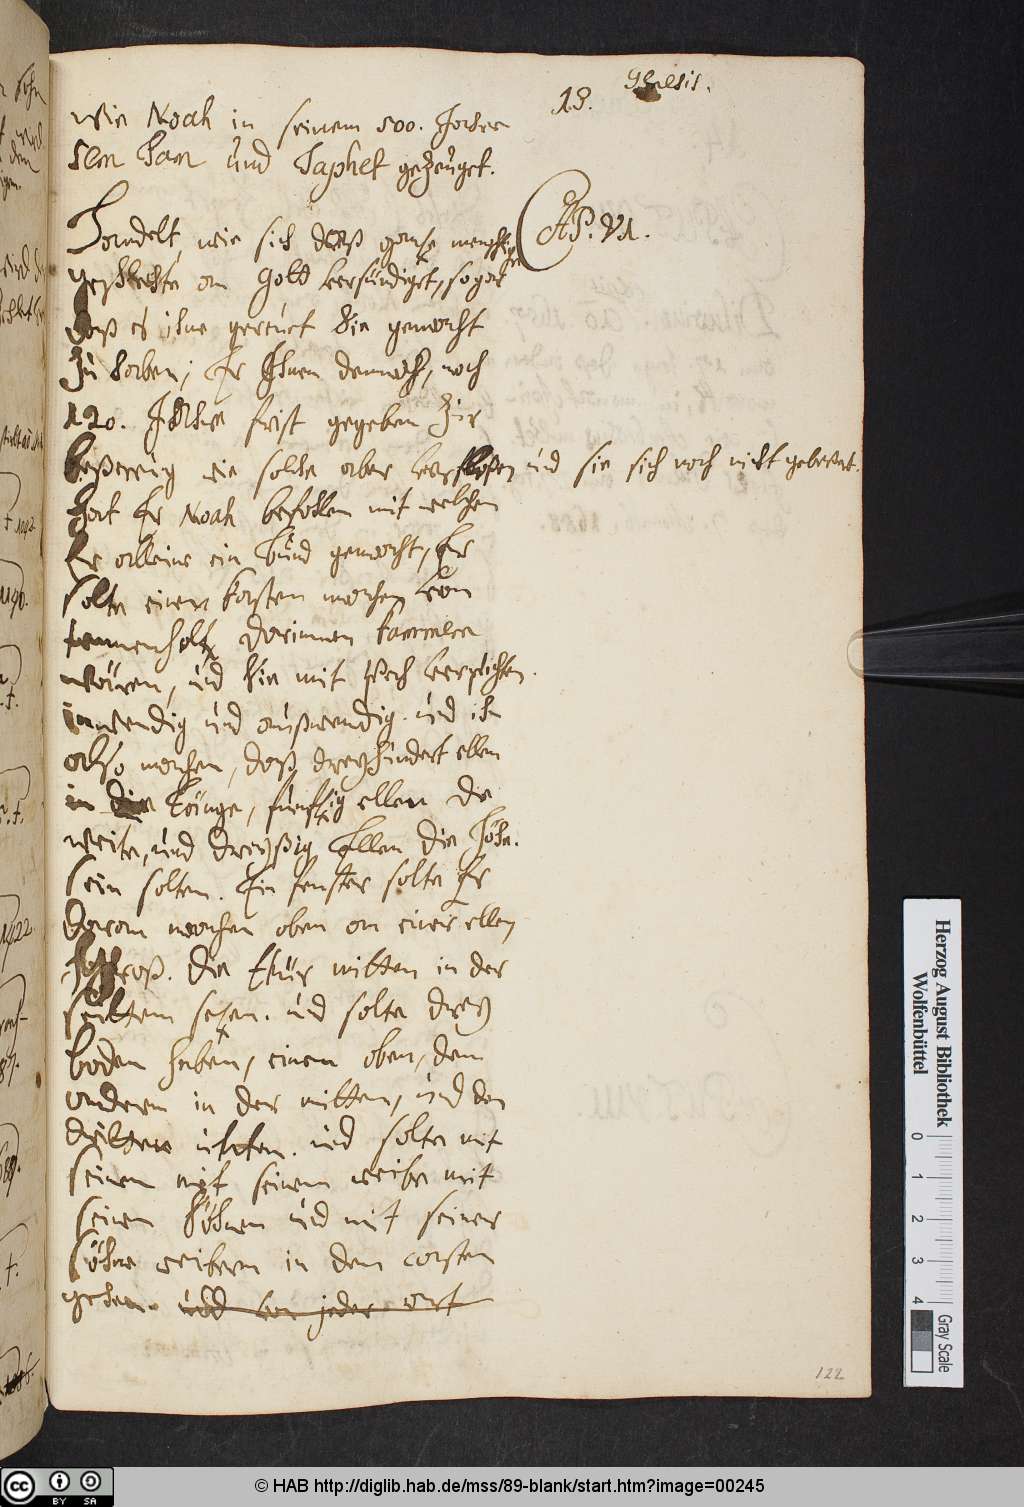 Genesis.
18.
wie Noah in seinem 500. Jahre
Sem Ham und Japhet gezeuget.
CAP. VI.
Handelt, wie sich daß gantze menschliche
geschlechte an Gott versündiget, sogar
daß es ihne gereüet Sie gemacht
Zu haben, Er Ihnen dennoch, noch
120. Jahre frist gegeben Zur
beßerung wie solche aber verfloßen und sie sich noch nicht gebeßert.
Hat Er Noah befohlen mit welchem
Er alleine ein bund gemacht, Er
solte einen Kasten machen von
tannenholtz darinnen Kammern
wären, und Sie mit Pech verpichen.
inwendig und außwendig. und ihn
also machen, daß dreyhundert ellen
in die Länge, funfftzig ellen die
weite, und dreyßig Ellen die Höhe.
sein solten. Ein fenster solte Er
daran machen oben an einer ellen
groß. Die thür mitten in der
seitten setzen. und solte drey
boden haben, einen oben, den
andern in der mitten, und den
dritten unten. und solte mit
seinen mit seinem weibe mit
seinen Söhnen und mit seiner
söhne weibern in den casten
gehen. und von jeder art
122
Herzog August Bibliothek
Wolfenbüttel
0 1 2 3 4
Gray Scale
cc BY SA
© HAB http://diglib.hab.de/mss/89-blank/start.htm?image=00245